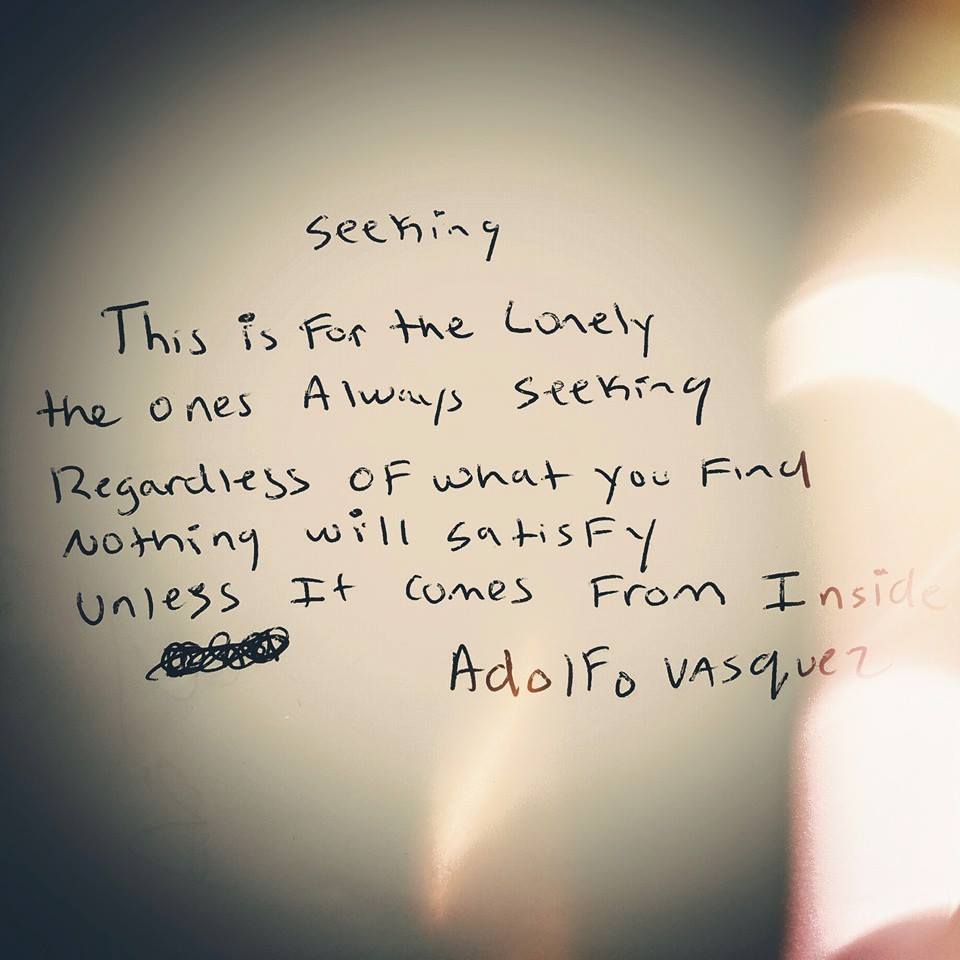 seeking
This is For the Lonely
the ones Always seeking
Regardless OF what you Find
Nothing will satisFy
unless It comes From Inside
AdolFo VAsquez